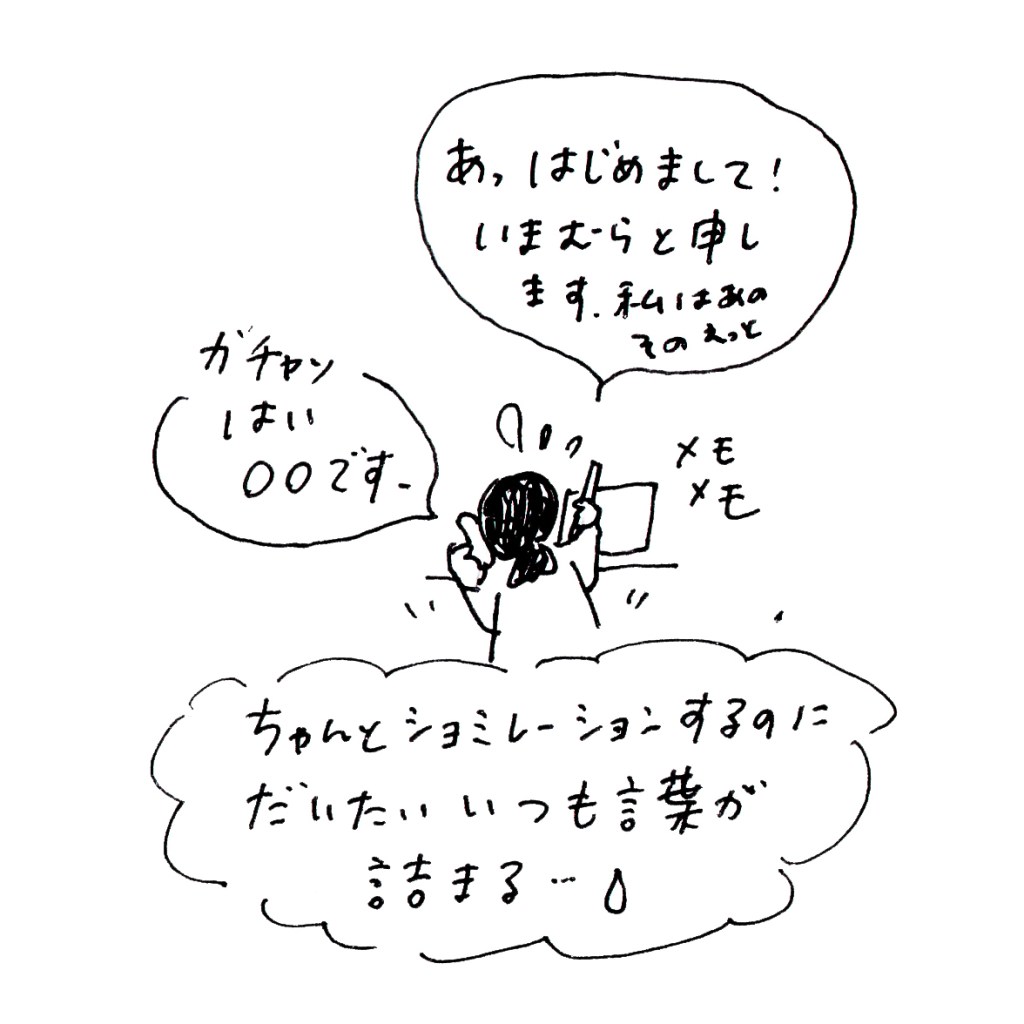 あっ はじめまして!
いまむらと申し
ます. 私はあの
その えっと
ガチャン
はい
〇〇です.
メモ
メモ
ちゃんとショミレーションするのに
だいたいいつも言葉が
詰まる…